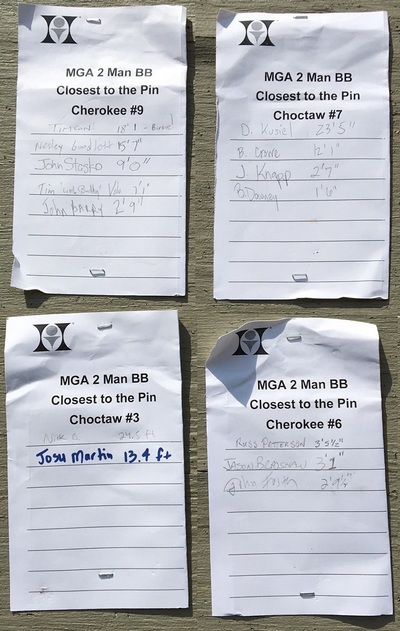 MGA 2 Man BB
Closest to the Pin
Cherokee #9
18' 1
15' 7"
John Stasko 9'0"
Tim 7'1"
John 2'9"
MGA 2 Man BB
Closest to the Pin
Choctaw #7
D. Kusiel 23'5"
B. Crowe 12'1"
J. Knapp 2'7"
B. Downey 1'6"
MGA 2 Man BB
Closest to the Pin
Choctaw #3
Nick O. 24.5 ft
Josh Martin 13.4 ft
MGA 2 Man BB
Closest to the Pin
Cherokee #6
Russ Patterson 3'5½"
Jason 3'1"
John 2'9½"